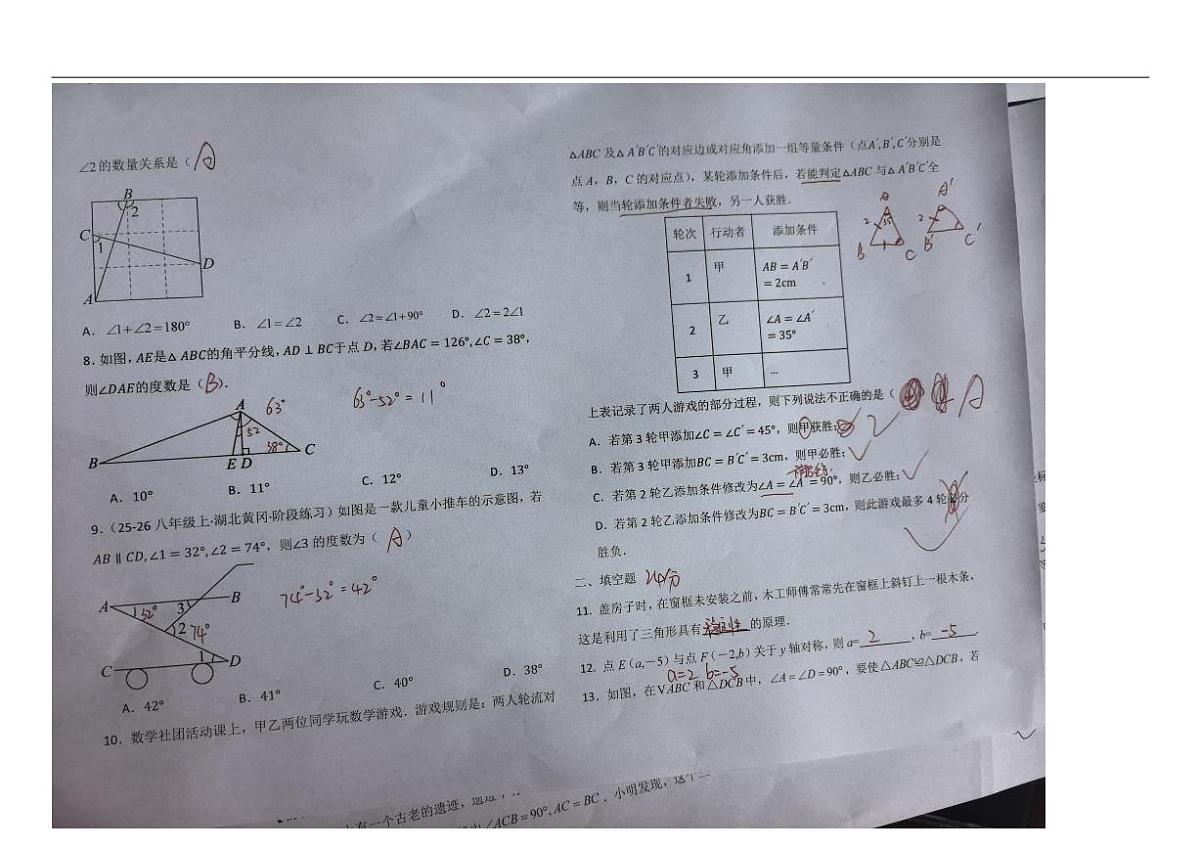 ∠2的数量关系是（ A
B
2
C
1
D
A
A．∠1+∠2=180° B．∠1=∠2 C．∠2=∠1+90° D．∠2=2∠1
8．如图，AE是△ABC的角平分线，AD⊥BC于点D，若∠BAC=126°,∠C=38°，
则∠DAE的度数是（B）.
63°-52°=11°
A 63°
52
38°
B E D C
A．10° B．11° C．12° D．13°
9．（25-26八年级上·湖北黄冈·阶段练习）如图是一款儿童小推车的示意图，若
AB∥CD,∠1=32°,∠2=74°，则∠3的度数为（ A ）
74°-32°=42°
A 32° 3 B
2 74°
C 1 D
A．42° B．41° C．40° D．38°
10．数学社团活动课上，甲乙两位同学玩数学游戏．游戏规则是：两人轮流对
△ABC及△A′B′C′的对应边或对应角添加一组等量条件（点A′,B′,C′分别是
点A，B，C的对应点），某轮添加条件后，若能判定△ABC与△A′B′C′全
等，则当轮添加条件者失败，另一人获胜．
A A′
2 35° 2
B C B′ C′
轮次 行动者 添加条件
1 甲 AB=A′B′
=2cm
2 乙 ∠A=∠A′
=35°
3 甲 …
上表记录了两人游戏的部分过程，则下列说法不正确的是（ A
A．若第3轮甲添加∠C=∠C′=45°，则甲获胜；
B．若第3轮甲添加BC=B′C′=3cm，则甲必胜；
C．若第2轮乙添加条件修改为∠A=∠A′=90°，则乙必胜；
D．若第2轮乙添加条件修改为BC=B′C′=3cm，则此游戏最多4轮必分
胜负．
二、填空题 24分
11．盖房子时，在窗框未安装之前，木工师傅常常先在窗框上斜钉上一根木条，
这是利用了三角形具有稳定性的原理．
12．点E（a,−5）与点F（−2,b）关于y轴对称，则a= 2 ，b= -5 ．
a=2 b=-5
13．如图，在VABC和△DCB中，∠A=∠D=90°，要使△ABC≌△DCB，若
有一个古老的遗迹，
∠ACB=90°,AC=BC．小明发现，这个二